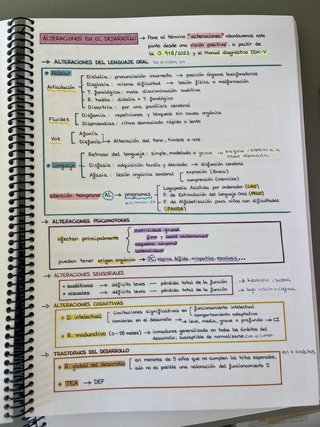 ALTERACIONES EN EL DESARROLLO → Pone al término "alteraciones" abordaremos este
punto desde una visión positiva, a partir de
la O. 9/8/2023 y el Manual diagnóstico DSM-V
→ ALTERACIONES DEL LENGUAJE ORAL se dividen en
• Habla:
Articulación
Dislalia: pronunciación incorrecta → posición órganos bucofonatorios
Disglosia: misma dificultad → lesión física o malformación
T. fonológico: mala discriminación auditiva
R. habla: dislalia + T. fonológico
Disartria: por una parálisis cerebral
Fluidez
Disfemia: repeticiones y bloqueos sin causa orgánica
Disprosodias: ritmo demasiado rápido o lento
Voz
Afonía
Disfonía → Alteración del tono, timbre o voz.
• Lenguaje
Retraso del lenguaje: simple, moderado o grave →
Disfasia: adquisición tardía y desviada → disfunción cerebral
Afasia: lesión orgánica cerebral
expresión (Broca)
comprensión (Wernicke)
atención temprana (AL) → programas
estimulación
Logopedia Asistida por ordenador (LAO)
P. de Estimulación del Lenguaje Oral (PELO)
P. de Alfabetización para niños con dificultades
(PANDA)
→ ALTERACIONES PSICOMOTORAS
afectan principalmente
motricidad gruesa
fina y coord. oculomanual
esquema corporal
lateralidad
pueden tener origen orgánico → PC, espina bífida, miopatías, escoliosis...
→ ALTERACIONES SENSORIALES
• auditivas → déficits leves — pérdida total de la función
• visuales → déficits leves — pérdida total de la función
→ hipoacusia - sordera
→ baja visión o ceguera
→ ALTERACIONES COGNITIVAS
• D. intelectual
limitaciones significativas en
funcionamiento intelectual
comportamiento adaptativo
comienza en el desarrollo → leve, media, grave o profundo → CI
• R. madurativo (0-48 meses) → inmadurez generalizada en todos los ámbitos del
desarrollo; susceptible de normalizarse con el tiempo
→ TRASTORNOS DEL DESARROLLO
• R. global del desarrollo
en menores de 5 años que no cumplen los hitos esperados,
aún no es posible una valoración del funcionamiento I
• TEA → DEF